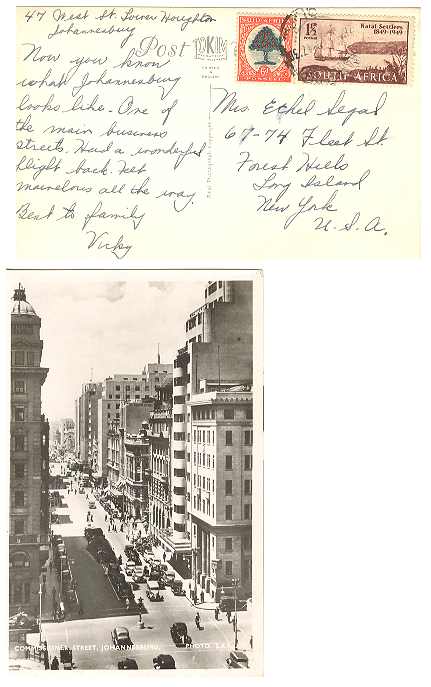 47 West St. Lower Houghton
Johannesburg
Now you know
what Johannesburg
looks like. One of
the main business
streets. Had a wonderful
flight back. Felt
marvelous all the way.
Best to family
Vicky
Post
SOUTH AFRICA
1½
Natal Settlers
1849-1949
SOUTH AFRICA
Mrs. Ethel Segal
67-74 Fleet St.
Forest Hills
Long Island
New York
U.S.A.
COMMISSIONER STREET, JOHANNESBURG. PHOTO